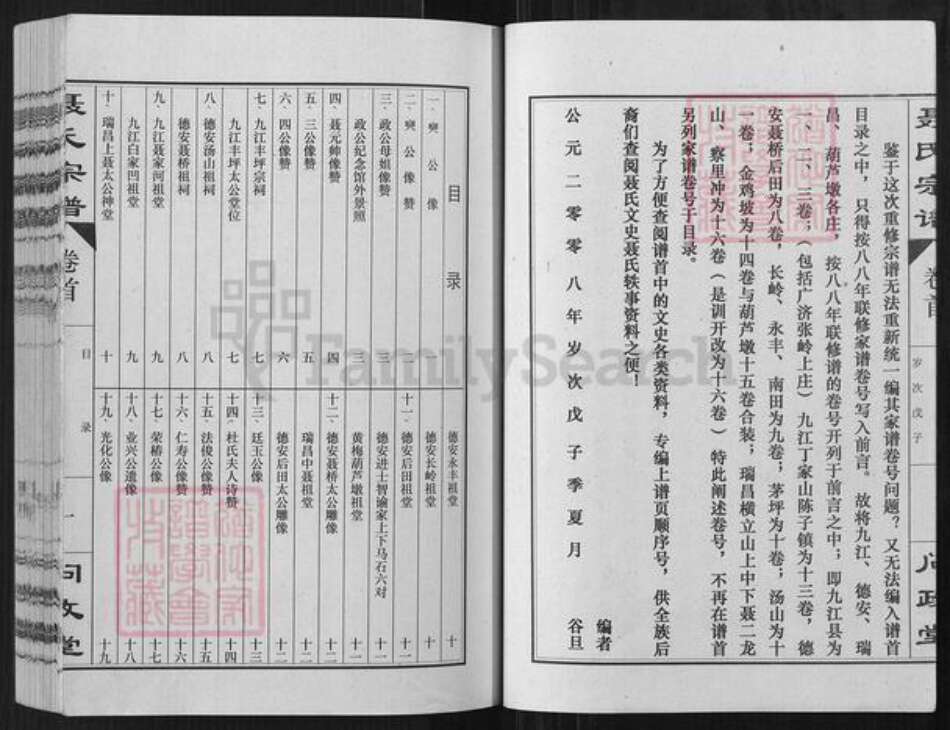 鉴于这次重修宗谱无法重新统一编其家谱卷号问题？又无法编入谱首
目录之中，只得按八八年联修家谱卷号写入前言。故将九江、德安、瑞
昌、葫芦墩各庄，按八八年联修谱的卷号开列于前言之中；即九江县为
一、二、三卷；（包括广济张岭上庄）九江丁家山陈子镇为十三卷，德
安聂桥后田为八卷，长岭、永丰、南田为九卷；茅坪为十卷；汤山为十
一卷；金鸡坡为十四卷与葫芦墩十五卷合装；瑞昌横立山上中下聂二龙
山、察里冲为十六卷（是训开改为十六卷）特此阐述卷号，不再在谱首
另列家谱卷号于目录。
为了方便查阅谱首中的文史各类资料，专编上谱页顺序号，供全族后
裔们查阅聂氏文史聂氏轶事资料之便！
编者
公元二零零八年岁次戊子季夏月 谷旦
聂氏宗谱 卷首 岁次戊子 问政堂
目录
一、奭公像 一
二、奭公像赞 二
三、政公母姐像赞 三
政公纪念馆外景照 三
四、聂元帅像赞 四
五、三公像赞 五
六、四公像赞 六
七、九江丰坪宗祠 七
九江丰坪太公堂位 七
八、德安汤山祖祠 八
德安聂桥祖祠 八
九、九江聂家河祖堂 九
九江白家凹祖堂 九
十、瑞昌上聂太公神堂 十
德安永丰祖堂 十
德安长岭祖堂 十
十一、德安后田祖堂 十一
德安进士智谕家上下马石六对 十一
黄梅葫芦墩祖堂 十一
十二、德安聂桥太公雕像 十二
瑞昌中聂祖堂 十二
德安后田太公雕像 十二
十三、廷玉公像 十三
十四、杜氏夫人诗赞 十四
十五、法俊公像赞 十五
十六、仁寿公像赞 十六
十七、荣椿公像 十七
十八、业兴公遗像 十八
十九、光化公像 十九
聂氏宗谱 卷首 目录 一 问政堂
FamilySearch